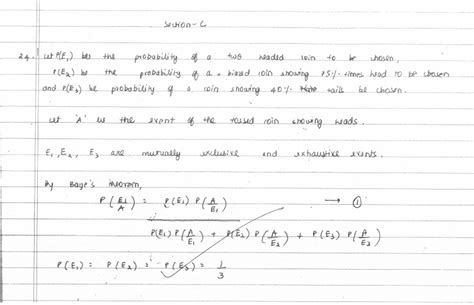 Section - C
24. Let P(E₁) be the probability of a two headed coin to be chosen,
P(E₂) be the probability of a biased coin showing 75% times head to be chosen
and P(E₃) be probability of a coin showing 40% tails be chosen.
Let 'A' be the event of the tossed coin showing heads.
E₁, E₂, E₃ are mutually exclusive and exhaustive events.
By Baye's theorem,
P(E₁/A) = P(E₁) P(A/E₁) → ①
P(E₁) P(A/E₁) + P(E₂) P(A/E₂) + P(E₃) P(A/E₃)
P(E₁) = P(E₂) = P(E₃) = 1/3